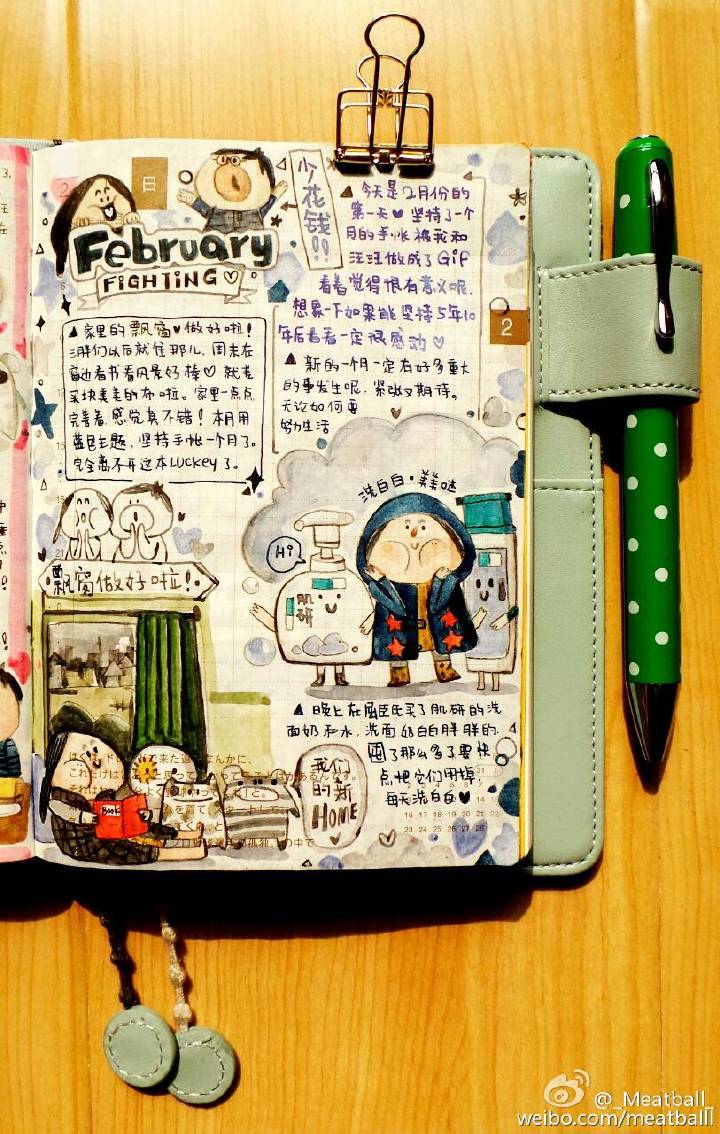 日
February
FIGHTING
少花钱!!
▲今天是2月份的
第一天♥坚持了一个
月的手帐被我和
汪汪做成了GiF
看着觉得很有意义呢,
想象一下如果能坚持5年10
年后看看一定很感动♡
2
▲新的一个月一定有好多重大
的事发生呢,紧张又期待。
无论如何要
努力生活
▲家里的飘窗♥做好啦!
以后就往那儿,周末在
窗边看书看风景好棒♡就差
买块美美的布啦。家里一点点
完善着,感觉真不错!本月用
蓝色主题,坚持手帐一个月了。
完全离不开这本LUCKey了。
洗白白·美美哒
Hi!
肌研
飘窗做好啦!
BOOK
我们的新HOME
▲晚上在屈臣氏买了肌研的洗
面奶和水,洗面奶白白胖胖的,
囤了那么多了要快
点把它们用掉,
每天洗白白♥
16 17 18 19 20 21 22
23 24 25 26 27 28
@_Meatball_
weibo.com/meatball